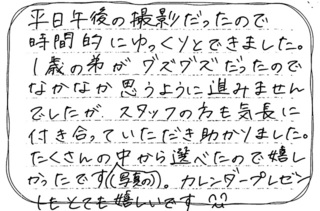 平日午後の撮影だったので
時間的にゆっくりとできました。
1歳の弟がグズグズだったので
なかなか思うように進みません
でしたが スタッフの方も気長に
付き合っていただき助かりました。
たくさんの中から選べたので嬉し
かったです(写真の)。カレンダープレゼン
トもとても嬉しいです ^^